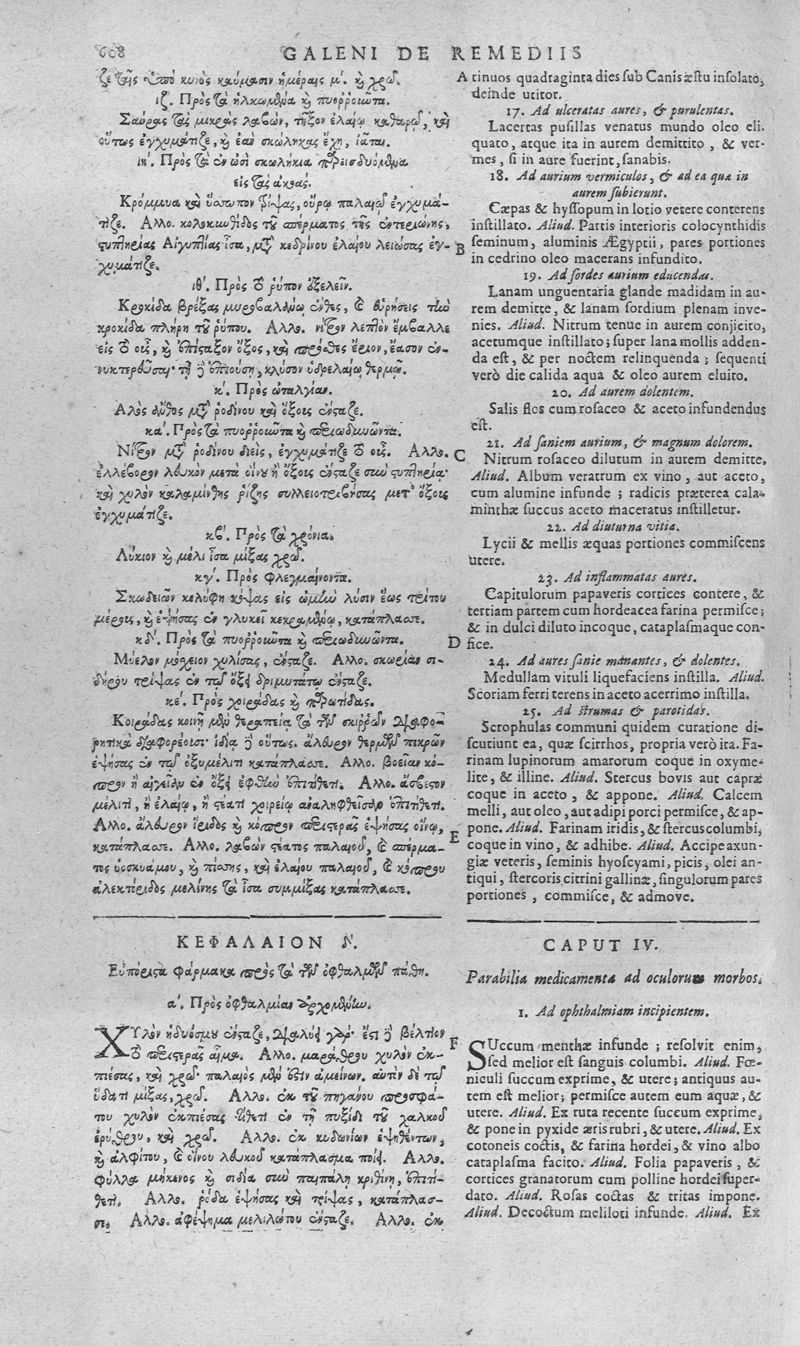 608 GALENI DE REMEDIIS
ζε ταῖς ὑπὸ κυνὸς καύμασιν ἡμέραις μʹ. καὶ χρῶ.
ιζʹ. Πρὸς τὰ ἡλκωμένα καὶ πυοῤῥοιῶντα.
Σαύρας τὰς μικρὰς λαβὼν, τῆξον ἐλαίῳ καθαρῷ, καὶ
οὕτως ἐγχυμάτιζε, καὶ ἐὰν σκώληκας ἔχῃ, ἰᾶται.
ιηʹ. Πρὸς τὰ ἐν ὠσὶ σκωλήκια καὶ εἰσδυόμενα
εἰς τὰς ἀκοάς.
Κρόμμυα καὶ ὕσσωπον τρίψας, οὔρῳ παλαιῷ ἐγχυμά-
τιζε. Ἄλλο. κολοκυνθίδος τοῦ σπέρματος τῆς ἐντεριώνης,
στυπτηρίας Αἰγυπτίας ἴσα, μετὰ κεδρίνου ἐλαίου λειώσας ἐγ-
χυμάτιζε.
ιθʹ. Πρὸς τὸ ῥύπον ἐξελεῖν.
Κροκίδα βρέξας μυροβαλάνῳ ἔνθες, καὶ εὑρήσεις τὴν
κροκίδα πλήρη τοῦ ῥύπου. Ἄλλο. νίτρον λεπτὸν ἔμβαλλε
εἰς τὸ οὖς, καὶ ἐπίσταξον ὄξος, καὶ πρόσθες ἔριον, ἔασον ἐν-
νυκτερεῦσαι· τῇ δὲ ἐπιούσῃ, κλύσον ὑδρελαίῳ θερμῷ.
κʹ. Πρὸς ὠταλγίαν.
Ἁλὸς ἄνθος μετὰ ῥοδίνου καὶ ὄξους ἔνσταζε.
καʹ. Πρὸς τὰ πυοῤῥοιῶντα καὶ περιωδυνῶντα.
Νίτρον μετὰ ῥοδίνου διεὶς, ἐγχυμάτιζε τὸ οὖς. Ἄλλο.
ἐλλέβορον λευκὸν μετὰ οἴνου ἢ ὄξους ἔνσταζε σὺν στυπτηρίᾳ·
καὶ χυλὸν καλαμίνθης ῥίζης συλλειοτριβήσας μετ' ὄξους
ἐγχυμάτιζε.
κβʹ. Πρὸς τὰ χρόνια.
Λύκιον καὶ μέλι ἴσα μίξας χρῶ.
κγʹ. Πρὸς φλεγμαίνοντα.
Σκωδειῶν κελύφη κόψας εἰς ὠμὴν λύσιν ἕως τρίτου
μέρους, καὶ ἑψήσας ἐν γλυκεῖ κεκραμένῳ, κατάπλασσε.
κδʹ. Πρὸς τὰ πυοῤῥοιῶντα καὶ περιωδυνῶντα.
Μύελον μόσχειον χυλίσας, ἔνσταζε. Ἄλλο. σκωρίαν σι-
δήρου τρίψας ἐν τῷ ὄξει δριμυτάτῳ ἔνσταζε.
κεʹ. Πρὸς χοιράδας καὶ παρωτίδας.
Χοιράδας κοινῇ μὲν θεραπείᾳ τὰ τῶν σκιῤῥῶν διαφο-
ρητικὰ διαφορέουσι· ἰδίᾳ δὲ οὕτως. ἄλευρον θέρμων πικρῶν
ἑψήσας ἐν τῷ ὀξυμέλιτι κατάπλασσε. Ἄλλο. βοείαν κό-
προν ἢ αἰγείαν ἐν ὄξει ἑφθὴν ἐπιτίθει. Ἄλλο. ἄσβεστον
μέλιτι, ἢ ἐλαίῳ, ἢ στέατι χοιρείῳ ἀναληφθεῖσαν ἐπιτίθει.
Ἄλλο. ἄλευρον ἴριδος καὶ κόπρον περιστερᾶς ἑψήσας οἴνῳ,
κατάπλασσε. Ἄλλο. λαβὼν στέατος παλαιοῦ, καὶ σπέρμα-
τος ὑοσκυάμου, καὶ πίσσης, καὶ ἐλαίου παλαιοῦ, καὶ κόπρου
ἀλεκτορίδος μηλίνης τὰ ἴσα συμμίξας κατάπλασσε.
ΚΕΦΑΛΑΙΟΝ δʹ.
Εὐπόριστα φάρμακα πρὸς τὰ τῶν ὀφθαλμῶν πάθη.
αʹ. Πρὸς ὀφθαλμίαν ἀρχομένην.
Χυλὸν ἡδυόσμου ἔνσταζε, διαλύει γάρ· ἔστι δὲ βέλτιον
τὸ περιστερᾶς αἷμα. Ἄλλο. μαράθρου χυλὸν ἐκ-
πιέσας, καὶ χρῶ· παλαιὸς μέν ἐστιν ἀμείνων. αὐτὸν δὲ τῷ
ὕδατι μίξας, χρῶ. Ἄλλο. ἐκ τοῦ πηγάνου προσφά-
του χυλὸν ἐκπιέσας τίθετι ἐν τῇ πυξίδι τοῦ χαλκοῦ
ἐρύθρου, καὶ χρῶ. Ἄλλο. ἐκ κυδωνίων ἑψηθέντων,
καὶ ἀλφίτου, καὶ οἴνου λευκοῦ κατάπλασμα ποίει. Ἄλλο.
φύλλα μήκωνος καὶ σίδια σὺν παιπάλῃ κριθίνῃ, ἐπιτί-
θετι. Ἄλλο. ῥόδα ἑψήσας καὶ τρίψας, κατάπλασ-
σε. Ἄλλο. ἀφέψημα μελιλώτου ἔνσταζε. Ἄλλο. ἐκ
A tinuos quadraginta dies sub Canis æstu insolato,
deinde utitor.
17. Ad ulceratas aures, & purulentas.
Lacertas pusillas venatus mundo oleo eli-
quato, atque ita in aurem demittito, & ver-
mes, si in aure fuerint, sanabis.
18. Ad aurium vermiculos, & ad ea qua in
aurem subierunt.
Cæpas & hyssopum in lotio vetere conterens
instillato. Aliud. Partis interioris colocynthidis
B seminum, aluminis Ægyptii, pares portiones
in cedrino oleo macerans infundito.
19. Ad sordes aurium educendas.
Lanam unguentaria glande madidam in au-
rem demitte, & lanam sordium plenam inve-
nies. Aliud. Nitrum tenue in aurem conjicito,
acetumque instillato; super lana mollis adden-
da est, & per noctem relinquenda; sequenti
verò die calida aqua & oleo aurem eluito.
20. Ad aurem dolentem.
Salis flos cum rosaceo & aceto infundendus
est.
21. Ad saniem aurium, & magnum dolorem.
C Nitrum rosaceo dilutum in aurem demitte.
Aliud. Album veratrum ex vino, aut aceto,
cum alumine infunde; radicis præterea cala-
minthæ succus aceto maceratus instilletur.
22. Ad diuturna vitia.
Lycii & mellis æquas portiones commiscens
utere.
23. Ad inflammatas aures.
Capitulorum papaveris cortices contere, &
tertiam partem cum hordeacea farina permisce;
& in dulci diluto incoque, cataplasmaque con-
D fice.
24. Ad aures sanie manantes, & dolentes.
Medullam vituli liquefaciens instilla. Aliud.
Scoriam ferri terens in aceto acerrimo instilla.
25. Ad strumas & parotidas.
Scrophulas communi quidem curatione di-
scutiunt ea, quæ scirrhos, propria verò ita. Fa-
rinam lupinorum amarorum coque in oxyme-
lite, & illine. Aliud. Stercus bovis aut capræ
coque in aceto, & appone. Aliud. Calcem
melli, aut oleo, aut adipi porci permisce, & ap-
pone. Aliud. Farinam iridis, & stercus columbi,
E coque in vino, & adhibe. Aliud. Accipe axun-
giæ veteris, seminis hyoscyami, picis, olei an-
tiqui, stercoris citrini gallinæ, singulorum pares
portiones, commisce, & admove.
CAPUT IV.
Parabilia medicamenta ad oculorum morbos.
1. Ad ophthalmiam incipientem.
F SUccum menthæ infunde; resolvit enim,
sed melior est sanguis columbi. Aliud. Fœ-
niculi succum exprime, & utere; antiquus au-
tem est melior; permisce autem eum aquæ, &
utere. Aliud. Ex ruta recente succum exprime,
& pone in pyxide æris rubri, & utere. Aliud. Ex
cotoneis coctis, & farina hordei, & vino albo
cataplasma facito. Aliud. Folia papaveris, &
cortices granatorum cum polline hordei super-
dato. Aliud. Rosas coctas & tritas impone.
Aliud. Decoctum meliloti infunde. Aliud. Ex